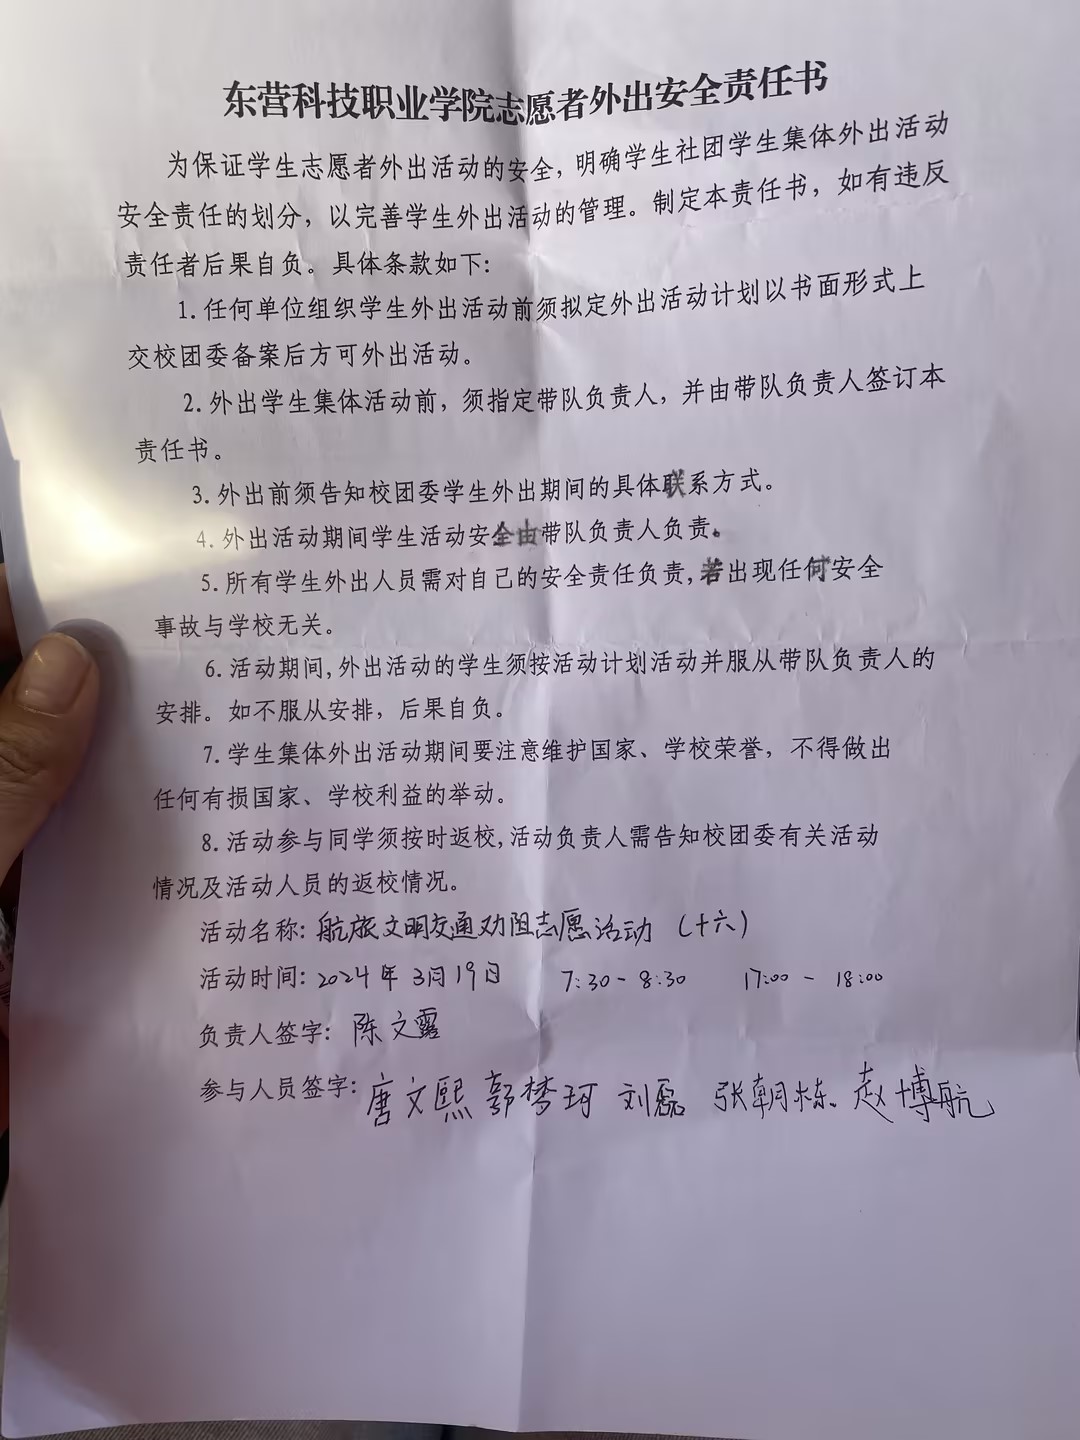 东营科技职业学院志愿者外出安全责任书
为保证学生志愿者外出活动的安全，明确学生社团学生集体外出活动
安全责任的划分，以完善学生外出活动的管理。制定本责任书，如有违反
责任者后果自负。具体条款如下:
1.任何单位组织学生外出活动前须拟定外出活动计划以书面形式上
交校团委备案后方可外出活动。
2.外出学生集体活动前，须指定带队负责人，并由带队负责人签订本
责任书。
3.外出前须告知校团委学生外出期间的具体联系方式。
4.外出活动期间学生活动安全由带队负责人负责。
5.所有学生外出人员需对自己的安全责任负责,若出现任何安全
事故与学校无关。
6.活动期间,外出活动的学生须按活动计划活动并服从带队负责人的
安排。如不服从安排，后果自负。
7.学生集体外出活动期间要注意维护国家、学校荣誉，不得做出
任何有损国家、学校利益的举动。
8.活动参与同学须按时返校,活动负责人需告知校团委有关活动
情况及活动人员的返校情况。
活动名称: 航旅文明交通劝阻志愿活动（十六）
活动时间: 2024年3月19日 7:30-8:30 17:00-18:00
负责人签字: 陈文露
参与人员签字: 唐文熙 郭梦珂 刘磊 张朝栋 赵博航